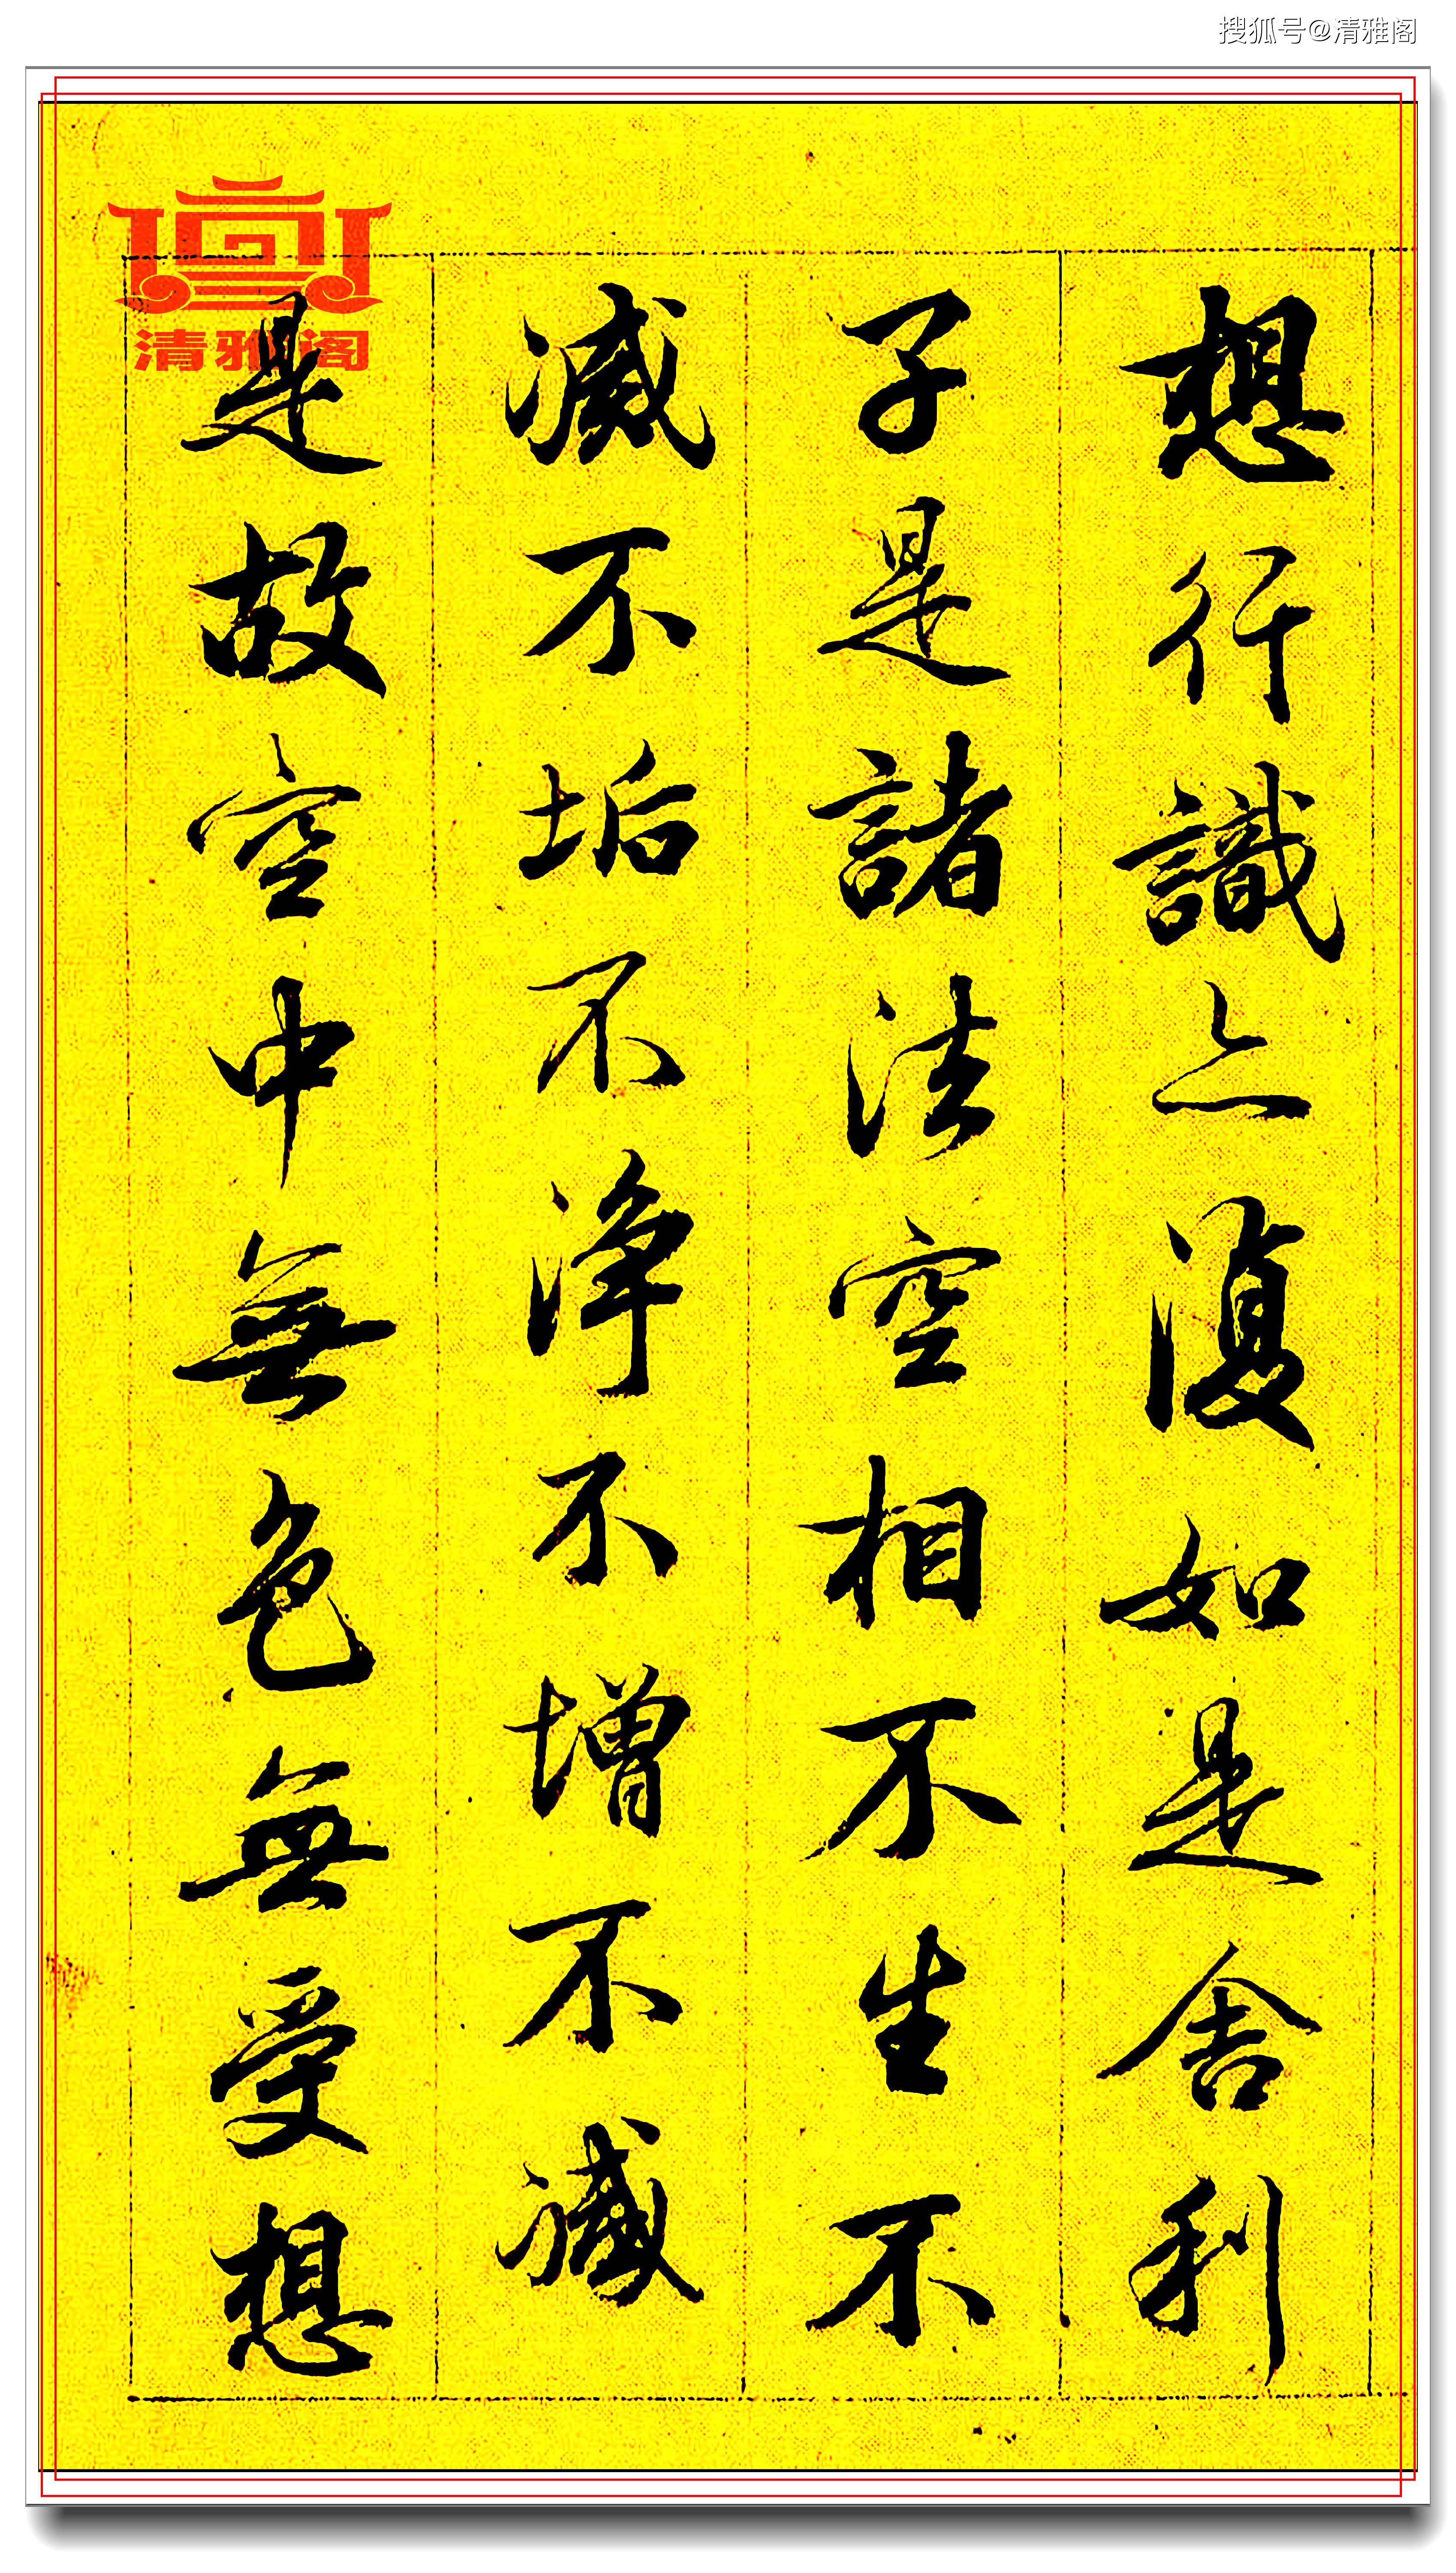 搜狐号@清雅阁
清雅阁
想行識亦復如是舍利
子是諸法空相不生不
滅不垢不淨不增不減
是故空中無色無受想